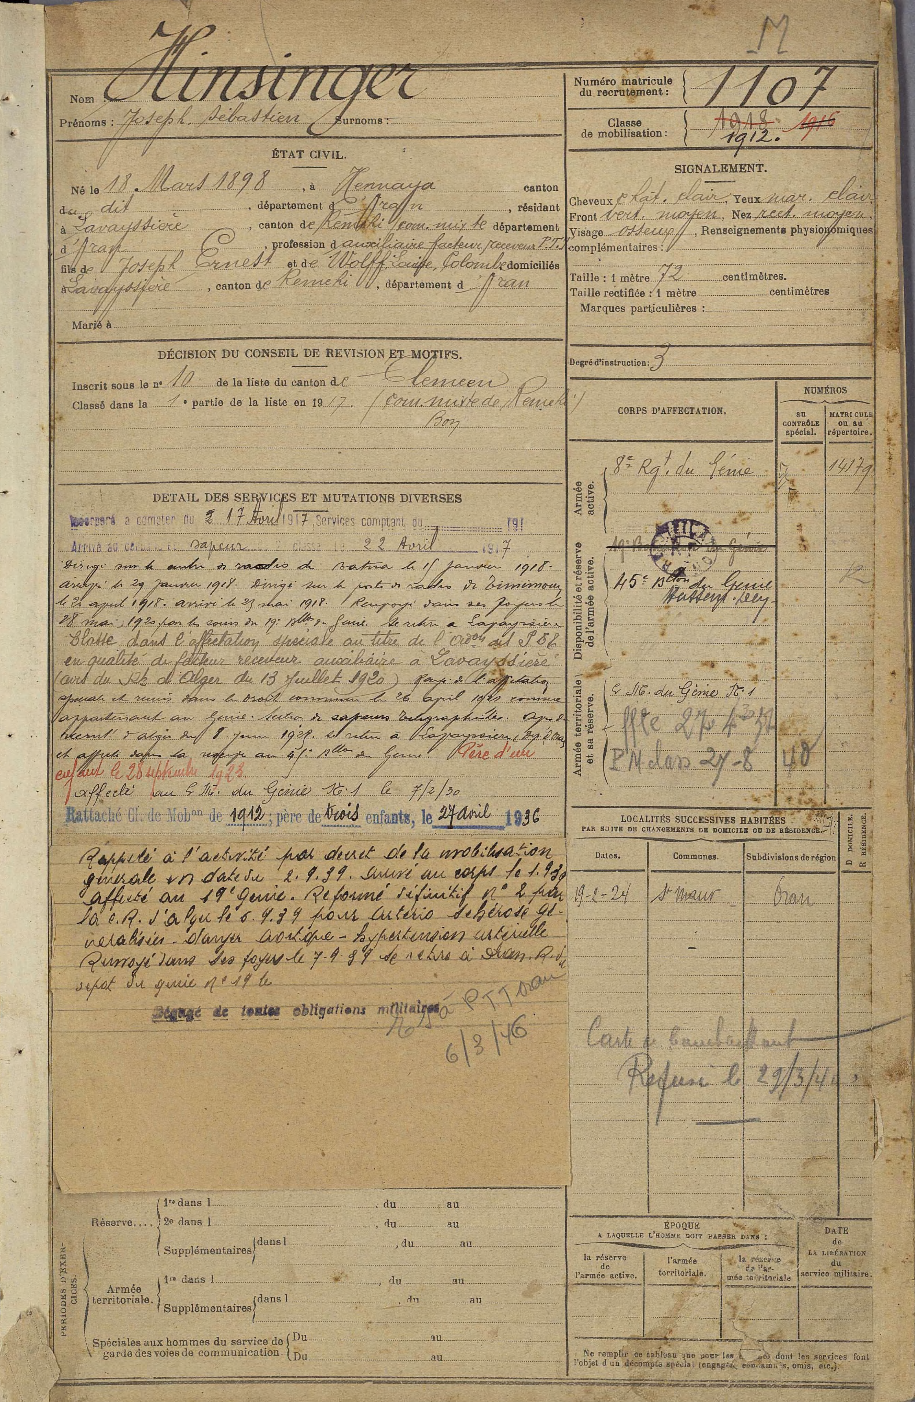 M
Nom : Hinsinger
Prénoms : Joseph Sébastien Surnoms :
ÉTAT CIVIL.
Né le 18 Mars 1898, à Hennaya canton
du dit, département d'Oran, résidant
à Lavayssière, canton de Remchi com. mixte département
d'Oran, profession d'auxiliaire facteur receveur P.T.T
fils de Joseph Ernest et de Wolff Colombe domiciliés
à Lavayssière, canton de Remchi, département d Oran
Marié à
DÉCISION DU CONSEIL DE REVISION ET MOTIFS.
Inscrit sous le n° 10 de la liste du canton de Tlemcen
Classé dans la 1e partie de la liste en 1917 (com. mixte de Remchi)
Bon
DÉTAIL DES SERVICES ET MUTATIONS DIVERSES
Incorporé à compter du 17 Avril 1917 Services comptant du 191
Arrivé au corps le sapeur 22 Avril 1917
Dirigé sur le centre de radios de Batna le 15 janvier 1918.
arrivé le 29 janvier 1918. Dirigé sur le poste de radios de Timimoun
le 22 april 1918. arrivé le 23 mai 1918. Renvoyé dans ses foyers le
28 mai 1920 par les soins du 19e Btn du Génie. Se retire à Lavayssière
Classé dans l'affectation spéciale au titre de
en qualité de facteur receveur auxiliaire à Lavayssière
(avis du d'Alger du 13 juillet 1920) Rayé de l'affectation
spéciale et remis dans le droit commun le 26 april 1920 comme
appartenant au Génie. Section de sapeurs télégraphistes.
8 juin 1928. se retire à Lavayssière
et affecté dans la réserve au 45e Btn du Génie Père d'un
enfant le 28 septembre 1923.
affecté au E.M. du Génie N°1 le 7/2/30
Rattaché Cl. de Mobon de 1912; père de trois enfants, le 27 avril 1936
Rappelé à l'activité par decret de la mobilisation
générale en date du 2.9.39. arrivé au corps le 1.9.39
affecté au 19e Génie. Reformé définitif n° 2 par
la C.R. d'Alger le 6.9.39 pour artério sclérose gé-
néralisée. danger aortique - hypertension artérielle
Renvoyé dans ses foyers le 7-9-39 se retire à Oran. R. du
dépot du génie n° 19 le
Dégagé de toutes obligations militaires
P T T Oran
6/3/46
PÉRIODES D'EXERCICES.
Réserve.... 1re dans l , du au
2e dans l , du au
Supplémentaires dans l , du au
Armée territoriale. 1re dans l , du au
Supplémentaires dans l , du au
Spéciales aux hommes du service de garde des voies de communication Du au
Du au
Numéro matricule du recrutement : 1107
Classe de mobilisation : 1918 1916
1912.
SIGNALEMENT.
Cheveux chât. clair. Yeux mar. clair
Front vert. moyen. Nez rect. moyen.
Visage osseux, Renseignements physionomiques
complémentaires :
Taille : 1 mètre 72 centimètres.
Taille rectifiée : 1 mètre centimètres
Marques particulières :
Degré d'instruction : 3
CORPS D'AFFECTATION.
NUMÉROS
au contrôle spécial.
MATRICULE ou au répertoire.
Armée active.
8e Rgt du Génie 14179
Disponibilité et réserve de l'armée active.
19e B du Génie
45e Bton du Génie 12
Hussein-Dey
Armée territoriale et sa réserve.
E.M. du Génie N°1
PN class 27-8 40
LOCALITÉS SUCCESSIVES HABITÉES
PAR SUITE DE CHANGEMENTS DE DOMICILE OU DE RÉSIDENCE.
Dates. Communes. Subdivisions de région
D DOMICILE. R RÉSIDENCE.
19-2-24 St Maur Oran
Carte de Combattant
Refusé le 29/3/4
ÉPOQUE
A LAQUELLE L'HOMME DOIT PASSER DANS :
la réserve de l'armée active.
l'armée territoriale.
la réserve de l'armée territoriale
DATE de LA LIBÉRATION du service militaire.
Ne remplir ce tableau que pour les dont les services font
l'objet d'un décompte spécial (engagés, condamnés, omis, etc.).